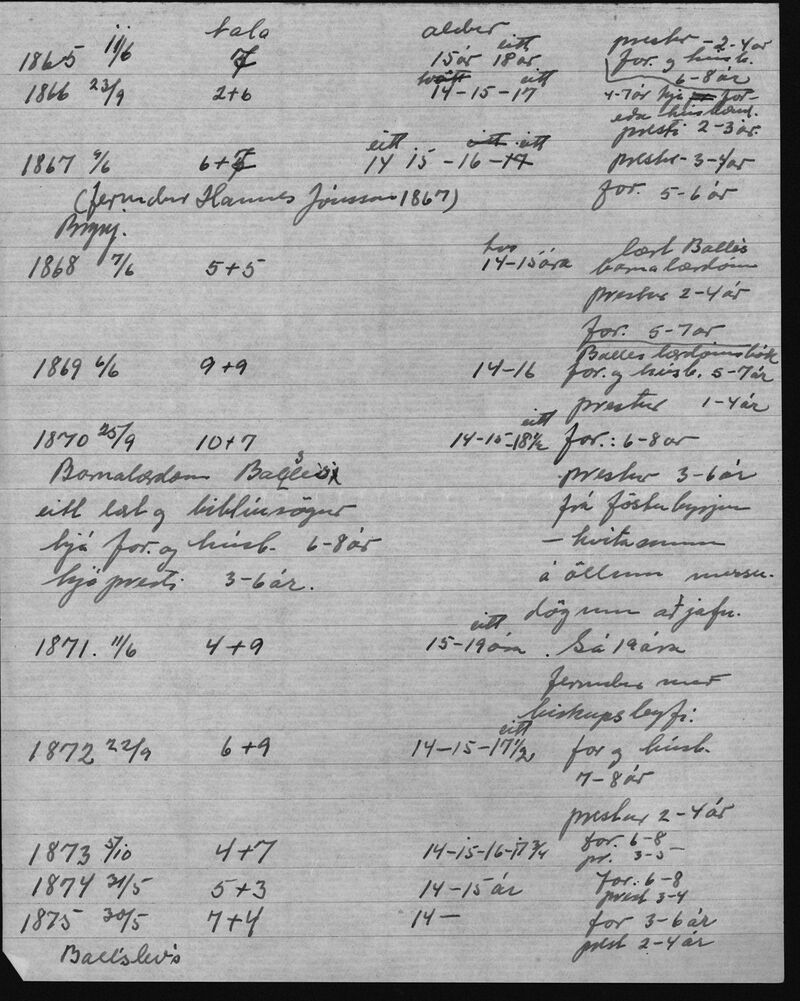 tala aldur
1865 11/6 7 15 ár eitt 18 ár prestur - 2-4 ár
for. og húsb.
6-8 ár
1866 23/9 2+6 14-15- eitt 17 4-7 ár hjá for-
eða húsbænd.
presti 2-3 ár.
1867 9/6 6+7 eitt 14 15 -16 - eitt 17 prestur - 3-4 ár
(fermdur Hannes Jónsson 1867) for. 5-6 ár
Brynj.
1868 7/6 5+5 14-15 ára lært Balles
barnalærdóm
prestur 2-4 ár
for. 5-7 ár
Balles lærdómsbók
1869 6/6 9+9 14-16 for. og húsb. 5-7 ár
prestur 1-4 ár
1870 25/9 10+7 14-15- eitt 18½ for.: 6-8 ár
Barnalærdóm Balles prestur 3-6 ár
eitt lært og biblíusögur frá föstubyrjun
hjá for. og húsb. 6-8 ár - hvítasunnu
hjá presti 3-6 ár. á öllum messu-
dögum að jafn.
1871. 11/6 4+9 15- eitt 19 ára . Sá 19 ára
fermdur með
biskupsleyfi.
1872 22/9 6+9 14-15- eitt 17½ for og húsb.
7-8 ár
prestur 2-4 ár
1873 5/10 4+7 14-15-16-17¾ for. 6-8
pr. 3-5
1874 31/5 5+3 14-15 ár for. 6-8
prest 3-4
1875 30/5 7+4 14- for 3-6 ár
prest 2-4 ár
Balslev's